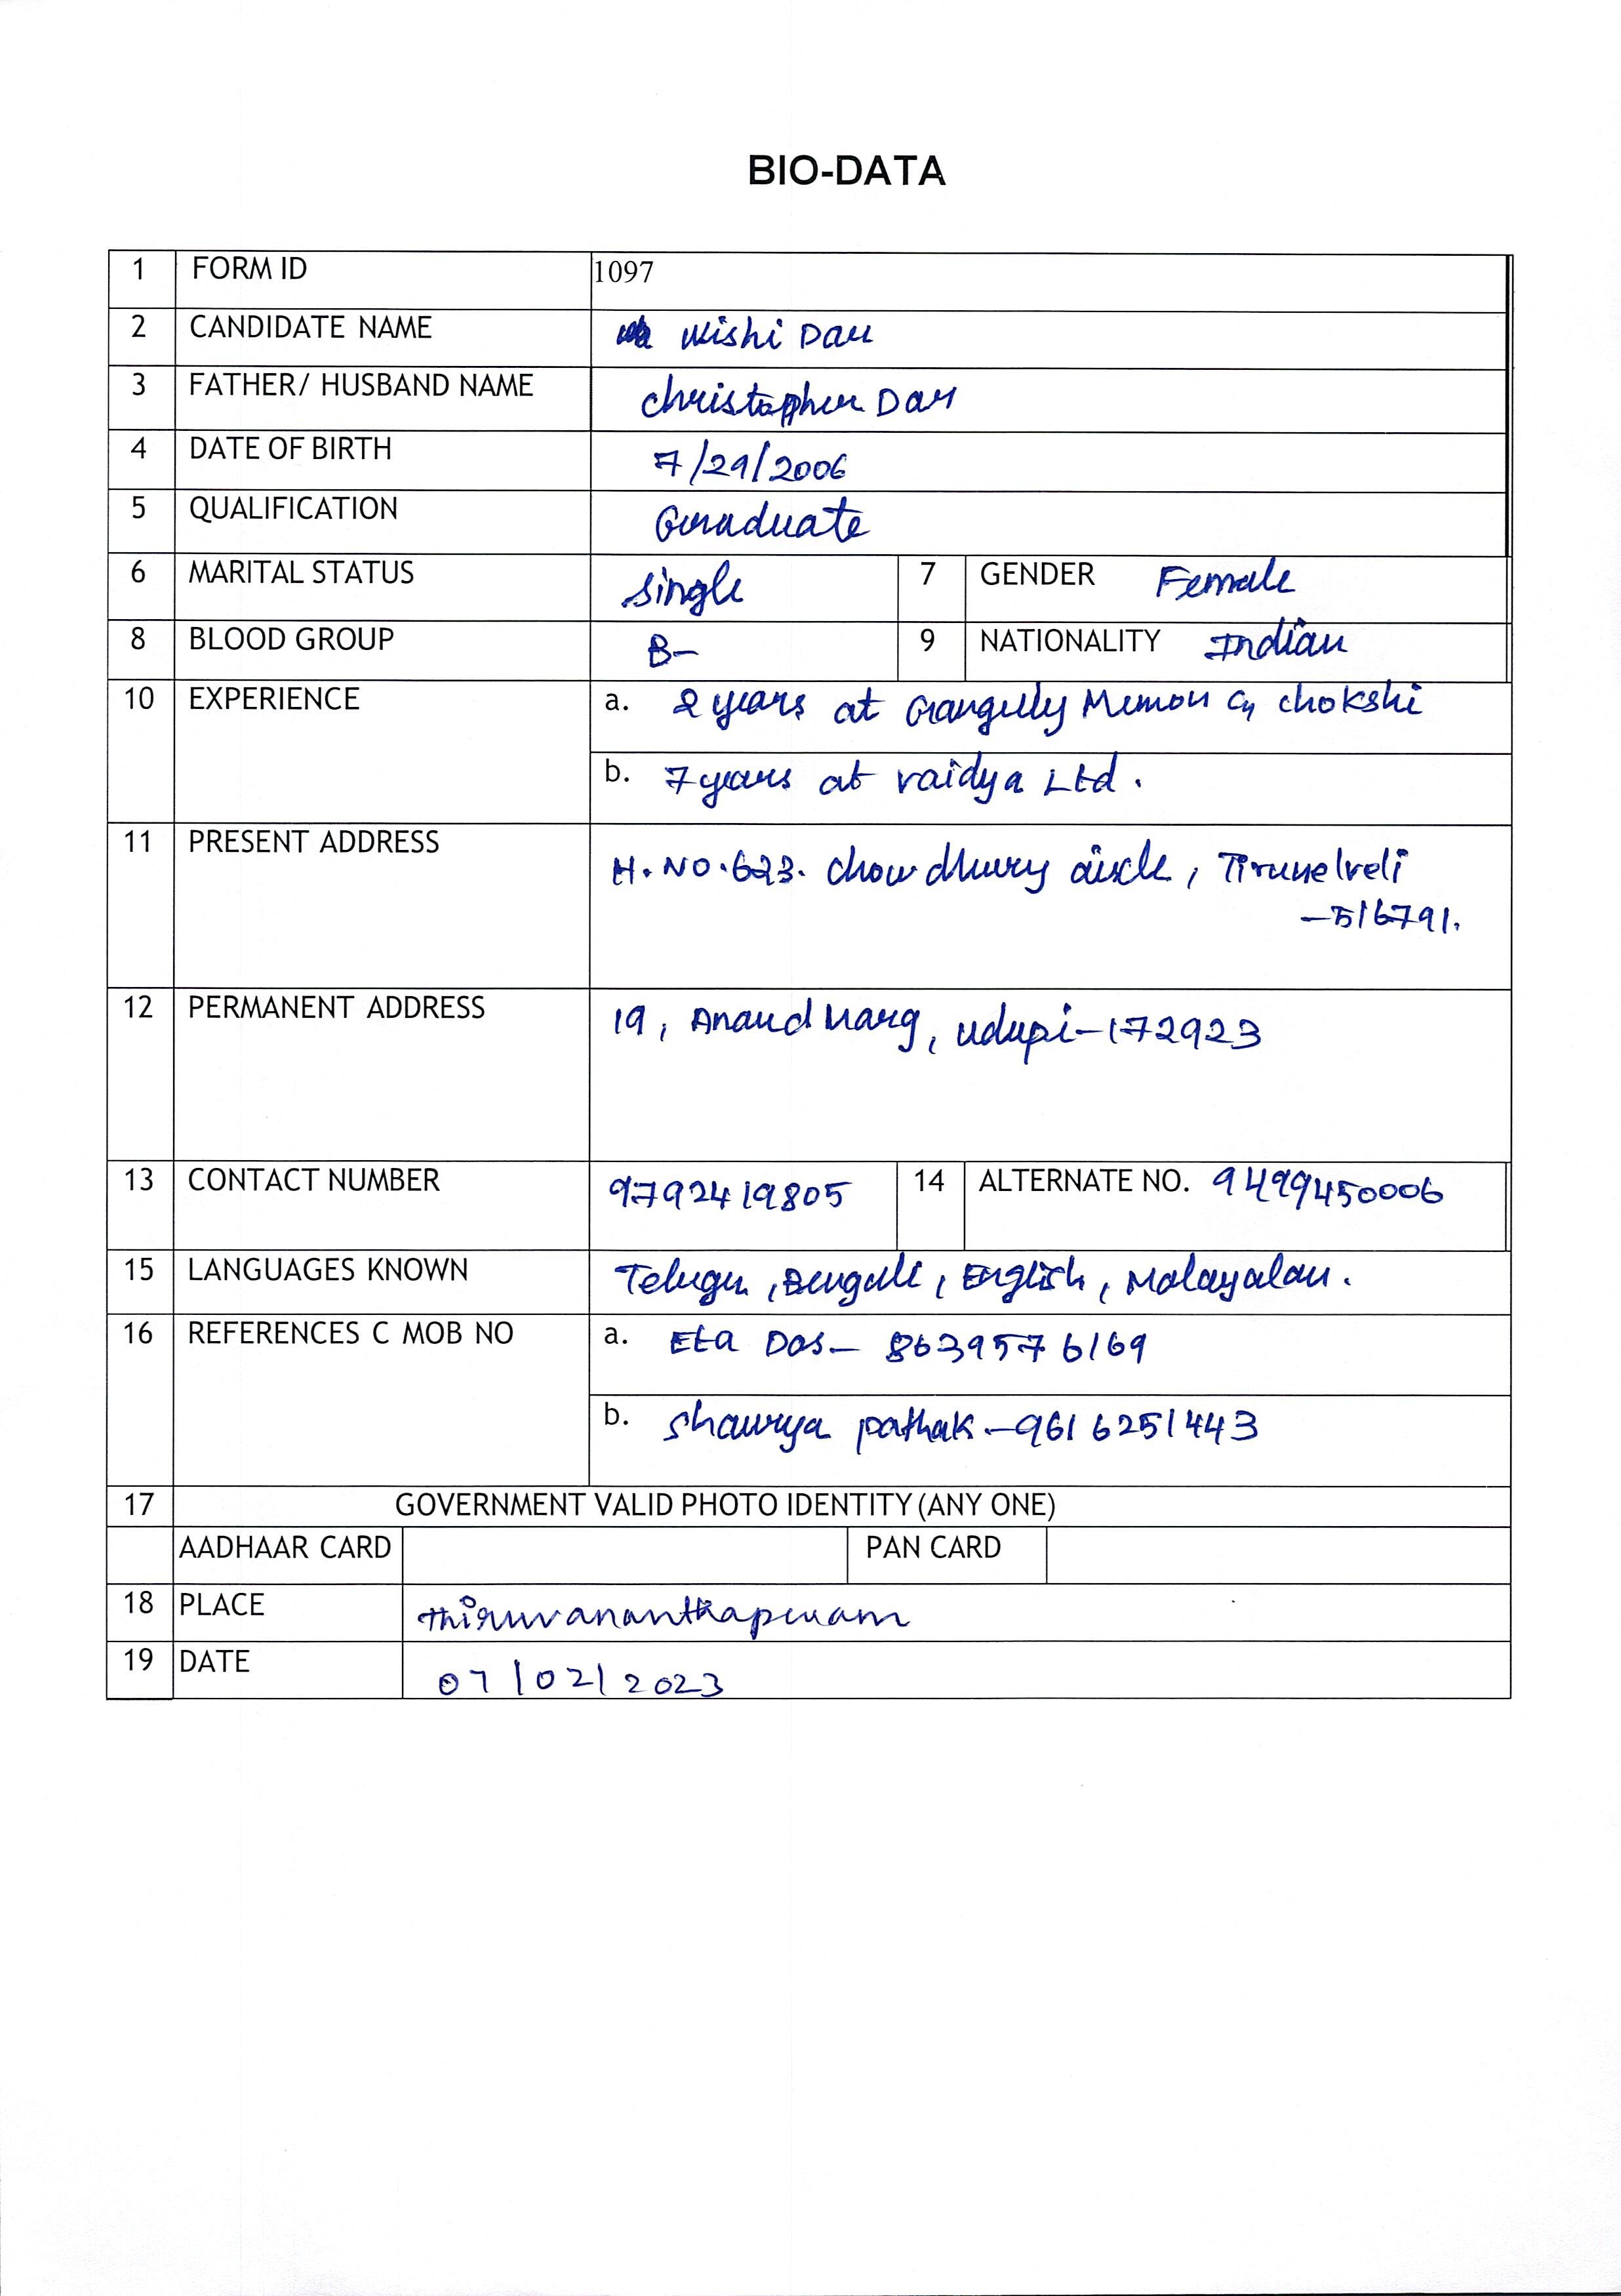 BIO-DATA
1 FORM ID 1097
2 CANDIDATE NAME Krishi Dar
3 FATHER/ HUSBAND NAME Christopher Dar
4 DATE OF BIRTH 7/29/2006
5 QUALIFICATION Graduate
6 MARITAL STATUS Single 7 GENDER Female
8 BLOOD GROUP B- 9 NATIONALITY Indian
10 EXPERIENCE a. 2 years at Ganguly Memon Chokshi
b. 7 years at Vaidya Ltd.
11 PRESENT ADDRESS H.NO.623. Chowdhury circle, Tirunelveli
-516791.
12 PERMANENT ADDRESS 19, Anand Marg, Udupi-172923
13 CONTACT NUMBER 9792419805 14 ALTERNATE NO. 9499450006
15 LANGUAGES KNOWN Telugu, Bengali, English, Malayalam.
16 REFERENCES C MOB NO a. Eta Das- 8639576169
b. Shaurya pathak-9616251443
17 GOVERNMENT VALID PHOTO IDENTITY (ANY ONE)
AADHAAR CARD PAN CARD
18 PLACE Thiruvananthapuram
19 DATE 07/02/2023